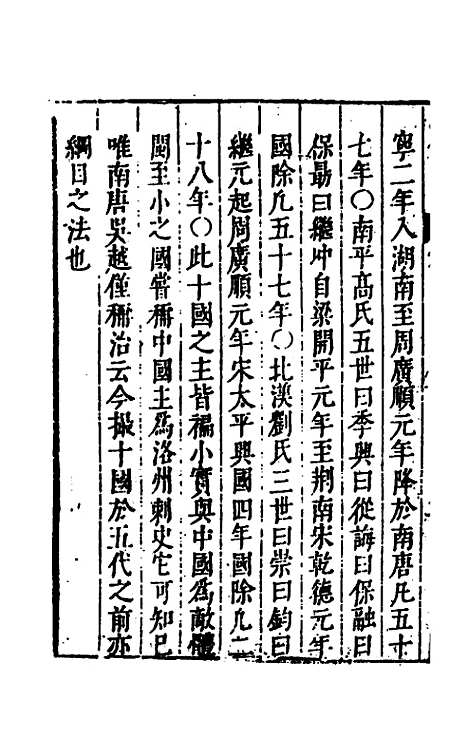 寧二年入湖南至周廣順元年降於南唐凡五十
七年〇南平高氏五世曰季興曰從誨曰保融曰
保勗曰繼冲自梁開平元年至荆南宋乾德元年
國除凡五十七年〇北漢劉氏三世曰崇曰鈞曰
繼元起周廣順元年宋太平興國四年國除凡二
十八年〇此十國之主皆褊小實與中國爲敵體
閩至小之國嘗稱中國主爲洛州刺史它可知已
唯南唐吳越僅稱治云今撮十國於五代之前亦
綱目之法也